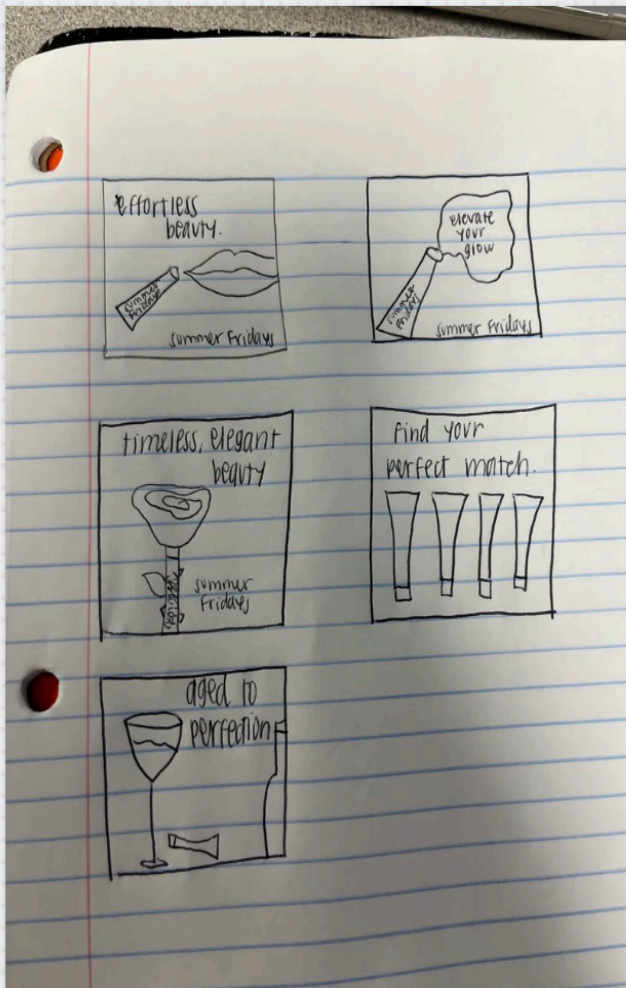 effortless
beauty.
summer
Fridays
summer Fridays
elevate
your
glow
summer
Fridays
summer Fridays
timeless, elegant
beauty
summer
Fridays
find your
perfect match.
aged to
perfection